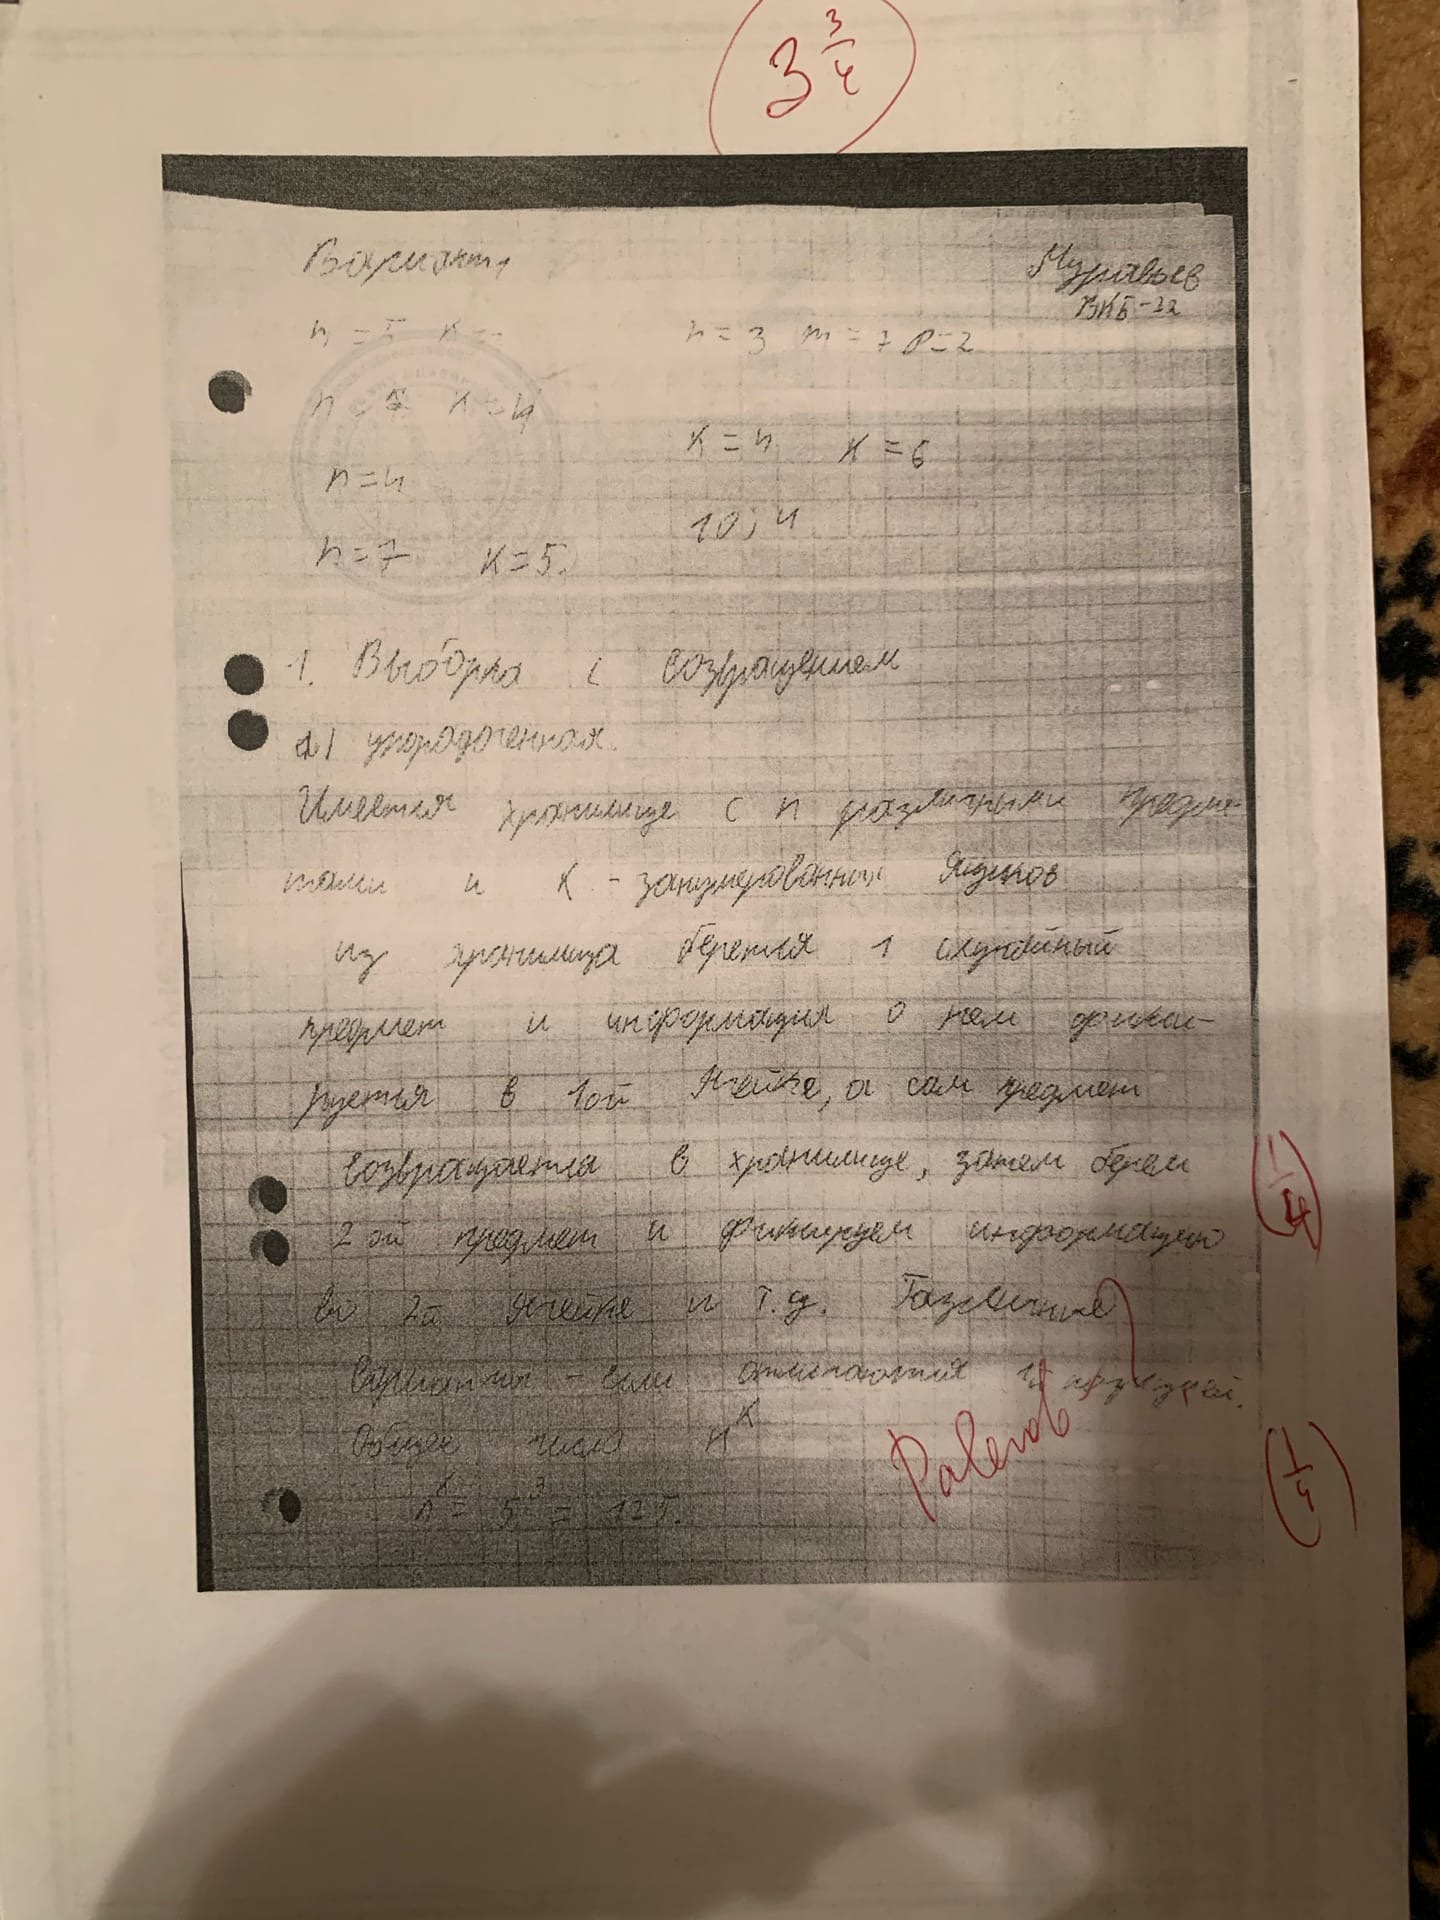 3 3/4
Вариант 1
Муравьев
ВКБ-22
n = 5 K =
n = 3 m = 7 P = 2
n = K = 4
K = 4 K = 6
n = 4
10; 4
n = 7 K = 5.
1. Выборка с возвращением
а) упорядоченная.
Имеется хранилище с n различными предме-
тами и K - занумерованных Ящиков
из хранилища берется 1 случайный
предмет и информация о нем фикси-
руется в 1ой Ячейке, а сам предмет
возвращается в хранилище, затем берем
1/4
2 ой предмет и фиксируем информацию
во 2й Ячейке и т.д. Различные
варианты - если отличаются
Общее число n^K
1/4
n^K = 5^3 = 125.